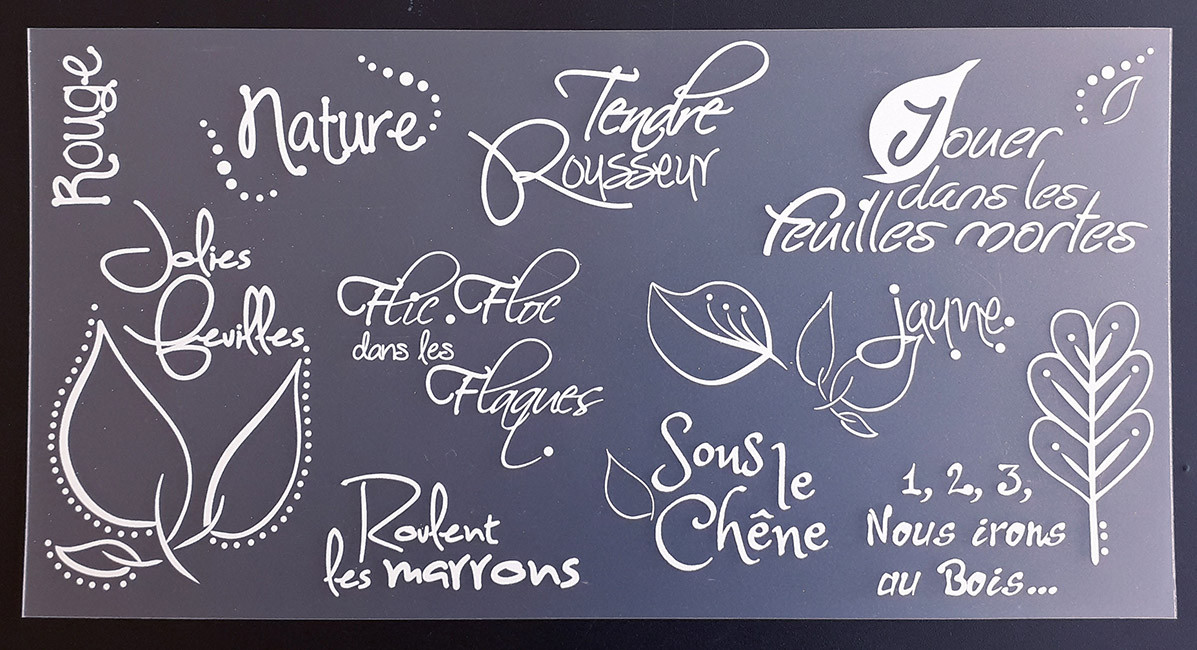 Rouge
Nature
Tendre
Rousseur
Jouer
dans les
feuilles mortes
Jolies
feuilles
Flic.Floc
dans les
Flaques.
jaune.
Sous le
Chêne
Roulent
les marrons
1, 2, 3,
Nous irons
au Bois...